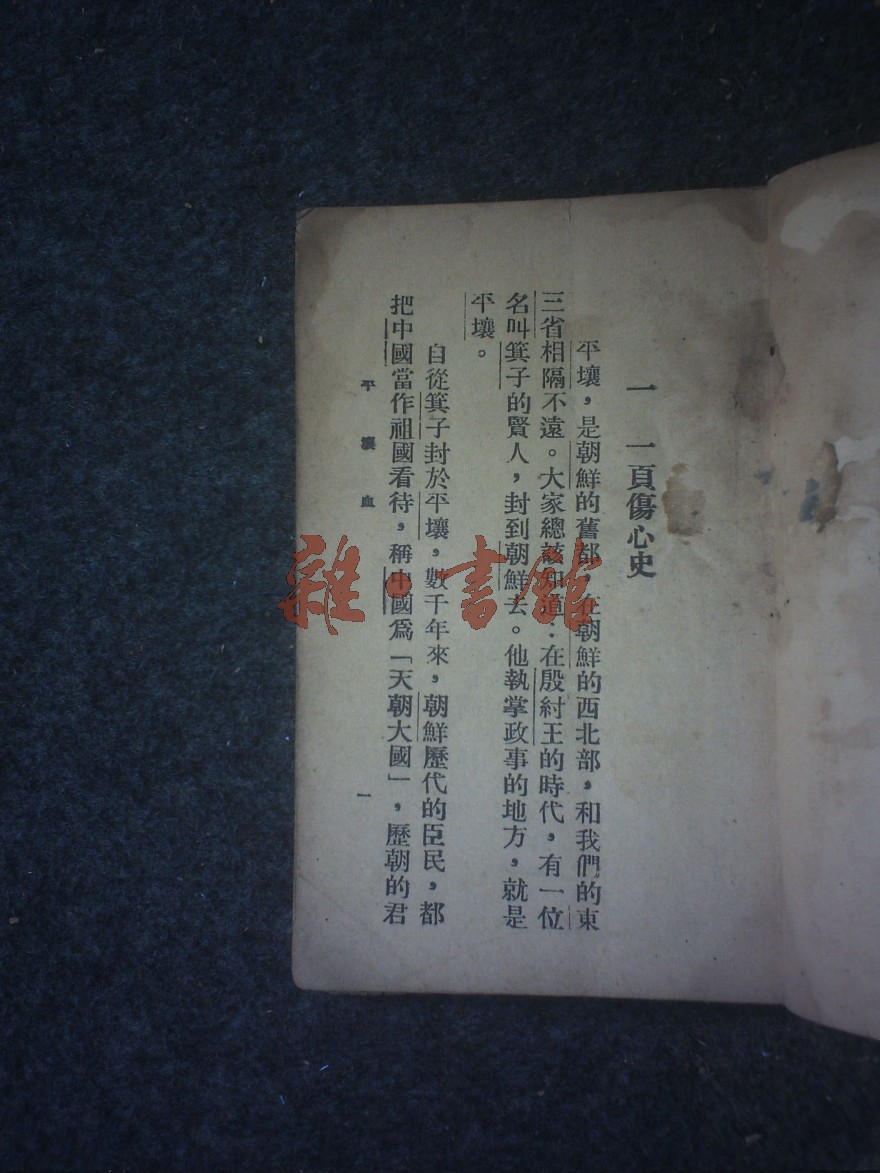 一　一頁傷心史
平壤，是朝鮮的舊都，在朝鮮的西北部，和我們的東
三省相隔不遠。大家總該知道：在殷紂王的時代，有一位
名叫箕子的賢人，封到朝鮮去。他執掌政事的地方，就是
平壤。
自從箕子封於平壤，數千年來，朝鮮歷代的臣民，都
把中國當作祖國看待，稱中國爲「天朝大國」，歷朝的君
平壤血
一
雜·書館